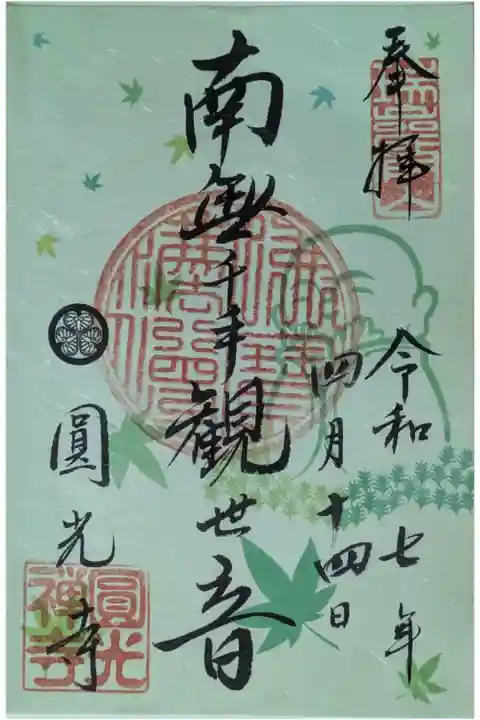 奉拝
令和七年
四月十四日
南無千手観世音
圓光寺
圓光
禅寺